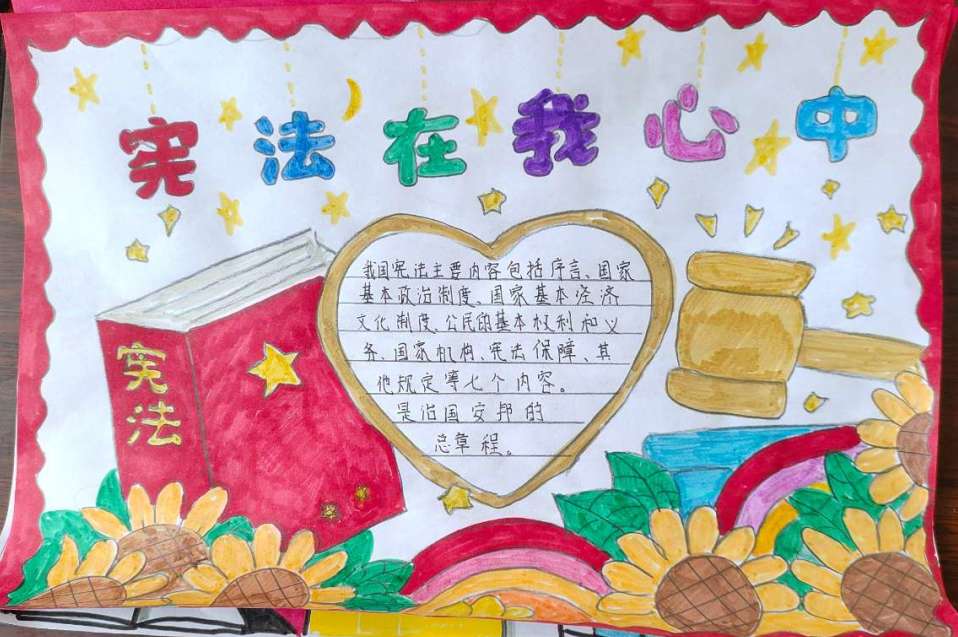 宪法在我心中
宪法
我国宪法主要内容包括序言、国家
基本政治制度、国家基本经济
文化制度、公民的基本权利和义
务、国家机构、宪法保障、其
他规定等七个内容。
是治国安邦的
总章程。